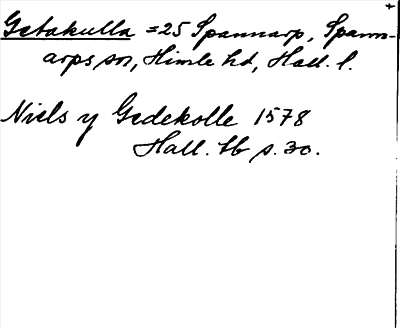 Getakulla =25 Spannarp, Spann-
arps sn, Himle hd, Hall. l.
Niels y Gedekolle 1578
Hall. tb s. 30.